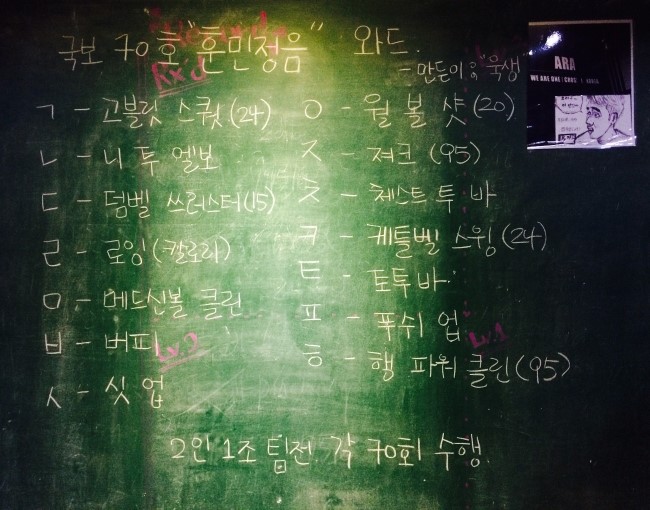 국보 70호 "훈민정음" 와드.
Rx'd
- 만든이 : "욱생
ㄱ - 고블릿 스쿼트 (24)
ㄴ - 니 투 엘보
ㄷ - 덤벨 쓰러스터 (15)
ㄹ - 로잉 (칼로리)
ㅁ - 메드신볼 클린
ㅂ - 버피 Lv.2
ㅅ - 싯 업
ㅇ - 월 볼 샷 (20)
ㅈ - 져크 (95)
ㅊ - 체스트 투 바
ㅋ - 케틀벨 스윙 (24)
ㅌ - 토투바.
ㅍ - 푸쉬 업
Lv.1
ㅎ - 행 파워 클린 (95)
2인 1조 팀전. 각 70회 수행.
ARA
WE ARE ONE